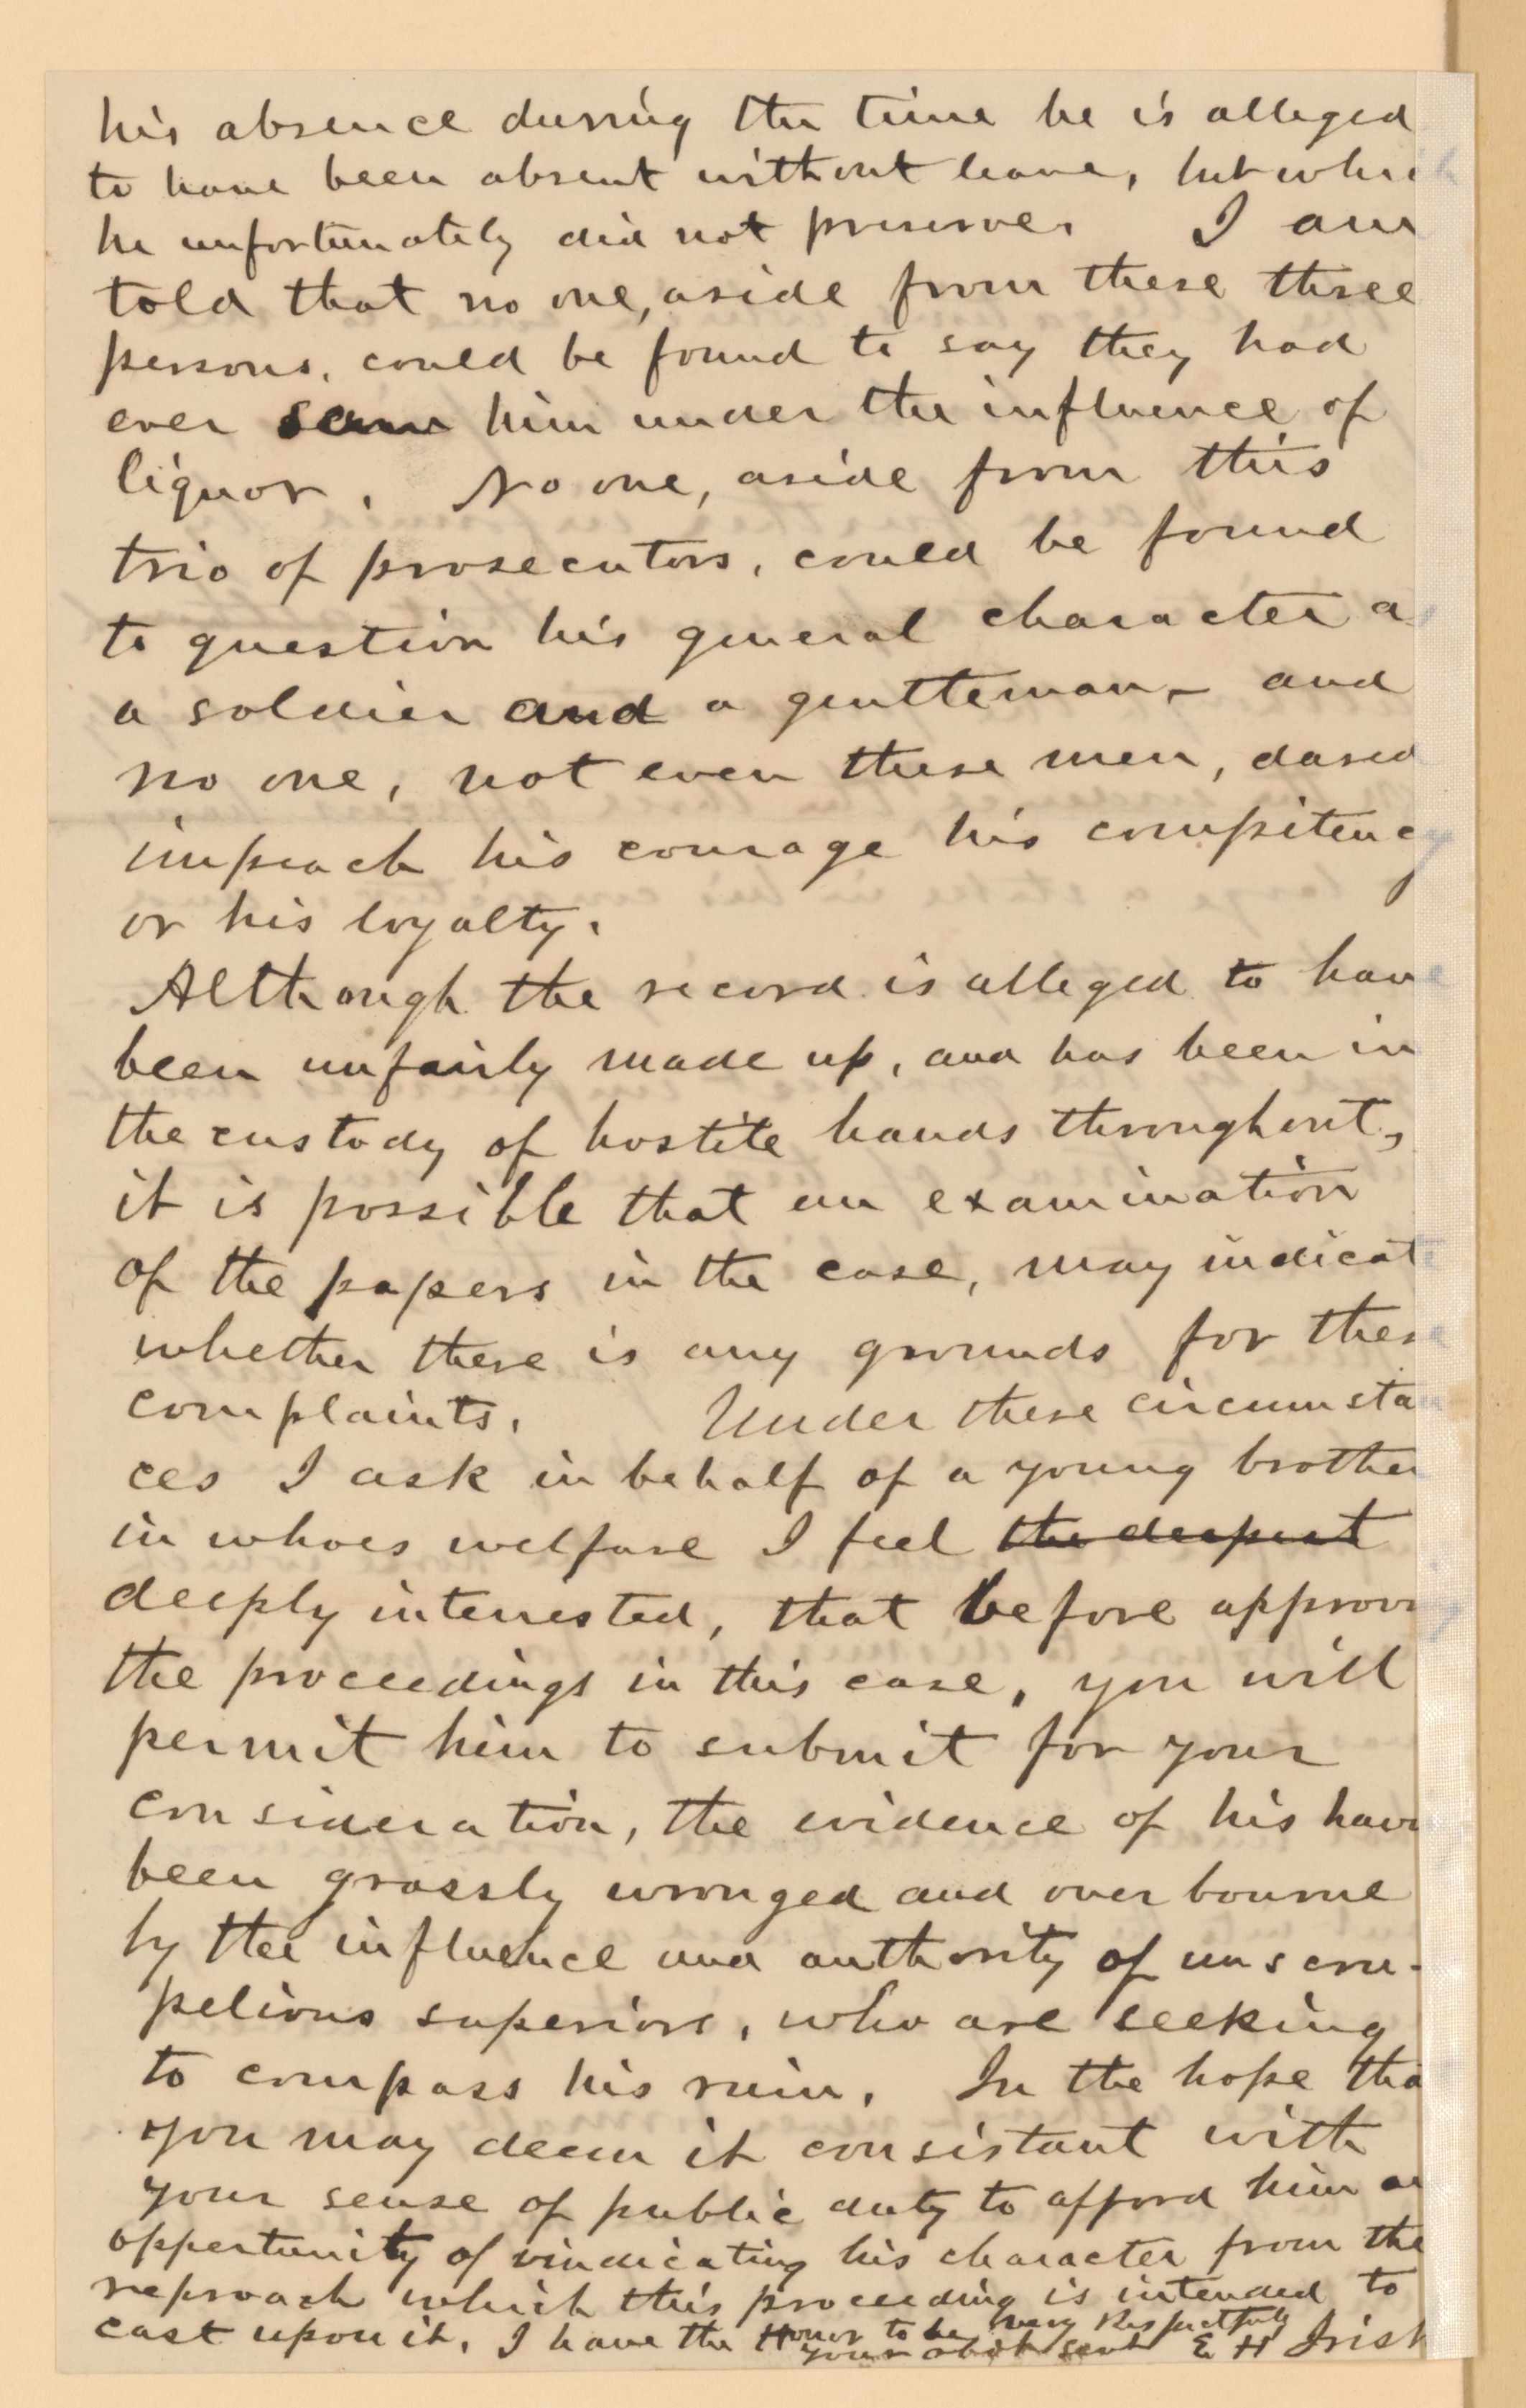 his absence durring the time he is alleged
to have been absent without leave, but which
he unfortunately did not preserve. I am
told that no one, aside from these three
persons, could be found to say they had
ever saw him under the influence of
liquor. No one, aside from this
trio of prosecutors, could be found
to question his general character as
a soldier and a gentleman— and
no one, not even these men, dared
impeach his courage his compitency
or his loyalty.
Although the record is alleged to have
been unfairly made up, and has been in
the custody of hostile hands throughout,
it is possible that an examination
of the papers in the case, may indicate
whether there is any grounds for these
complaints. Under these circumstan
ces I ask in behalf of a young brother
in whoes welfare I feel the deepest
deeply interrested, that before approving
the proceedings in this case, you will
permit him to submit for your
consideration, the evidence of his havi
been grossly wronged and over bourne
by the influence and authority of unscru-
pelious superiors, who are seeking
to compass his ruin. In the hope tha
you may deem it consistant with
your sense of public duty to afford him an
oppertunity of vindicating his character from the
reproach which this proceeding is intended to
cast upon it, I have the Honor to be very Respectfuly
your obdt servt E H Irish